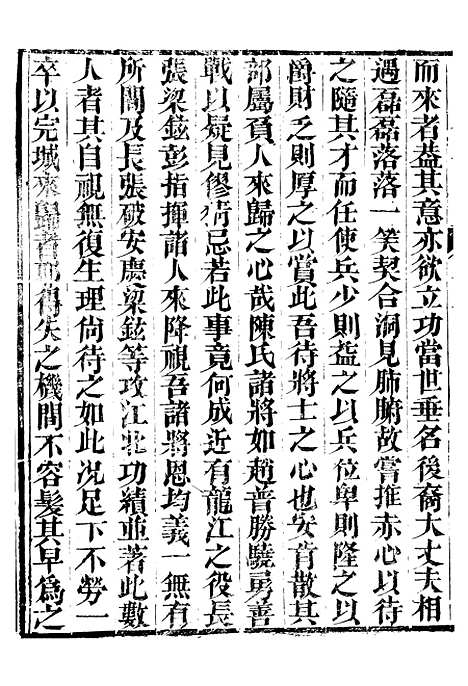 而來者葢其意亦欲立功當世垂名後裔大丈夫相
遇磊磊落落一笑契合洞見肺腑故嘗推赤心以待
之隨其才而任使兵少則益之以兵位卑則隆之以
爵財乏則厚之以賞此吾待將士之心也安肯散其
部屬負人來歸之心哉陳氏諸將如趙普勝驍勇善
戰以疑見僇猜忌若此事竟何成近有龍江之役長
張梁鉉彭指揮諸人來降視吾諸將恩均義一無有
所間及長張破安慶梁鉉等攻江北功績並著此數
人者其自視無復生理尙待之如此况足下不勞一
卒以完城來歸者耶得失之機間不容髮其早爲之